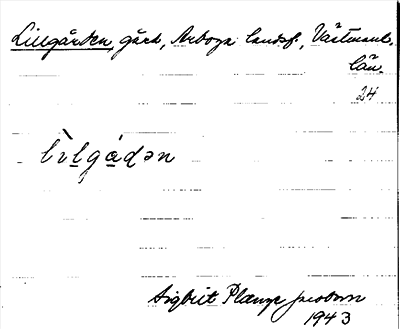 Lillgården, gård, Arboga landsf., Västmanl.
län.
24
lìlgádən
Sigbrit Plænge Jacobson
1943